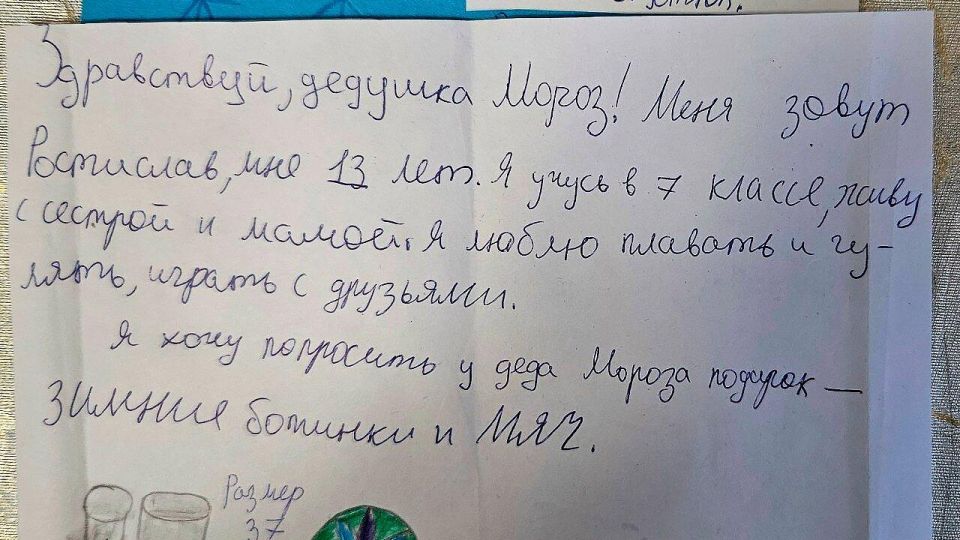 Здравствуй, дедушка Мороз! Меня зовут
Ростислав, мне 13 лет. Я учусь в 7 классе, живу
с сестрой и мамой. Я люблю плавать и гу-
лять, играть с друзьями.
Я хочу попросить у деда Мороза подарок —
зимние ботинки и мяч.
Размер
37